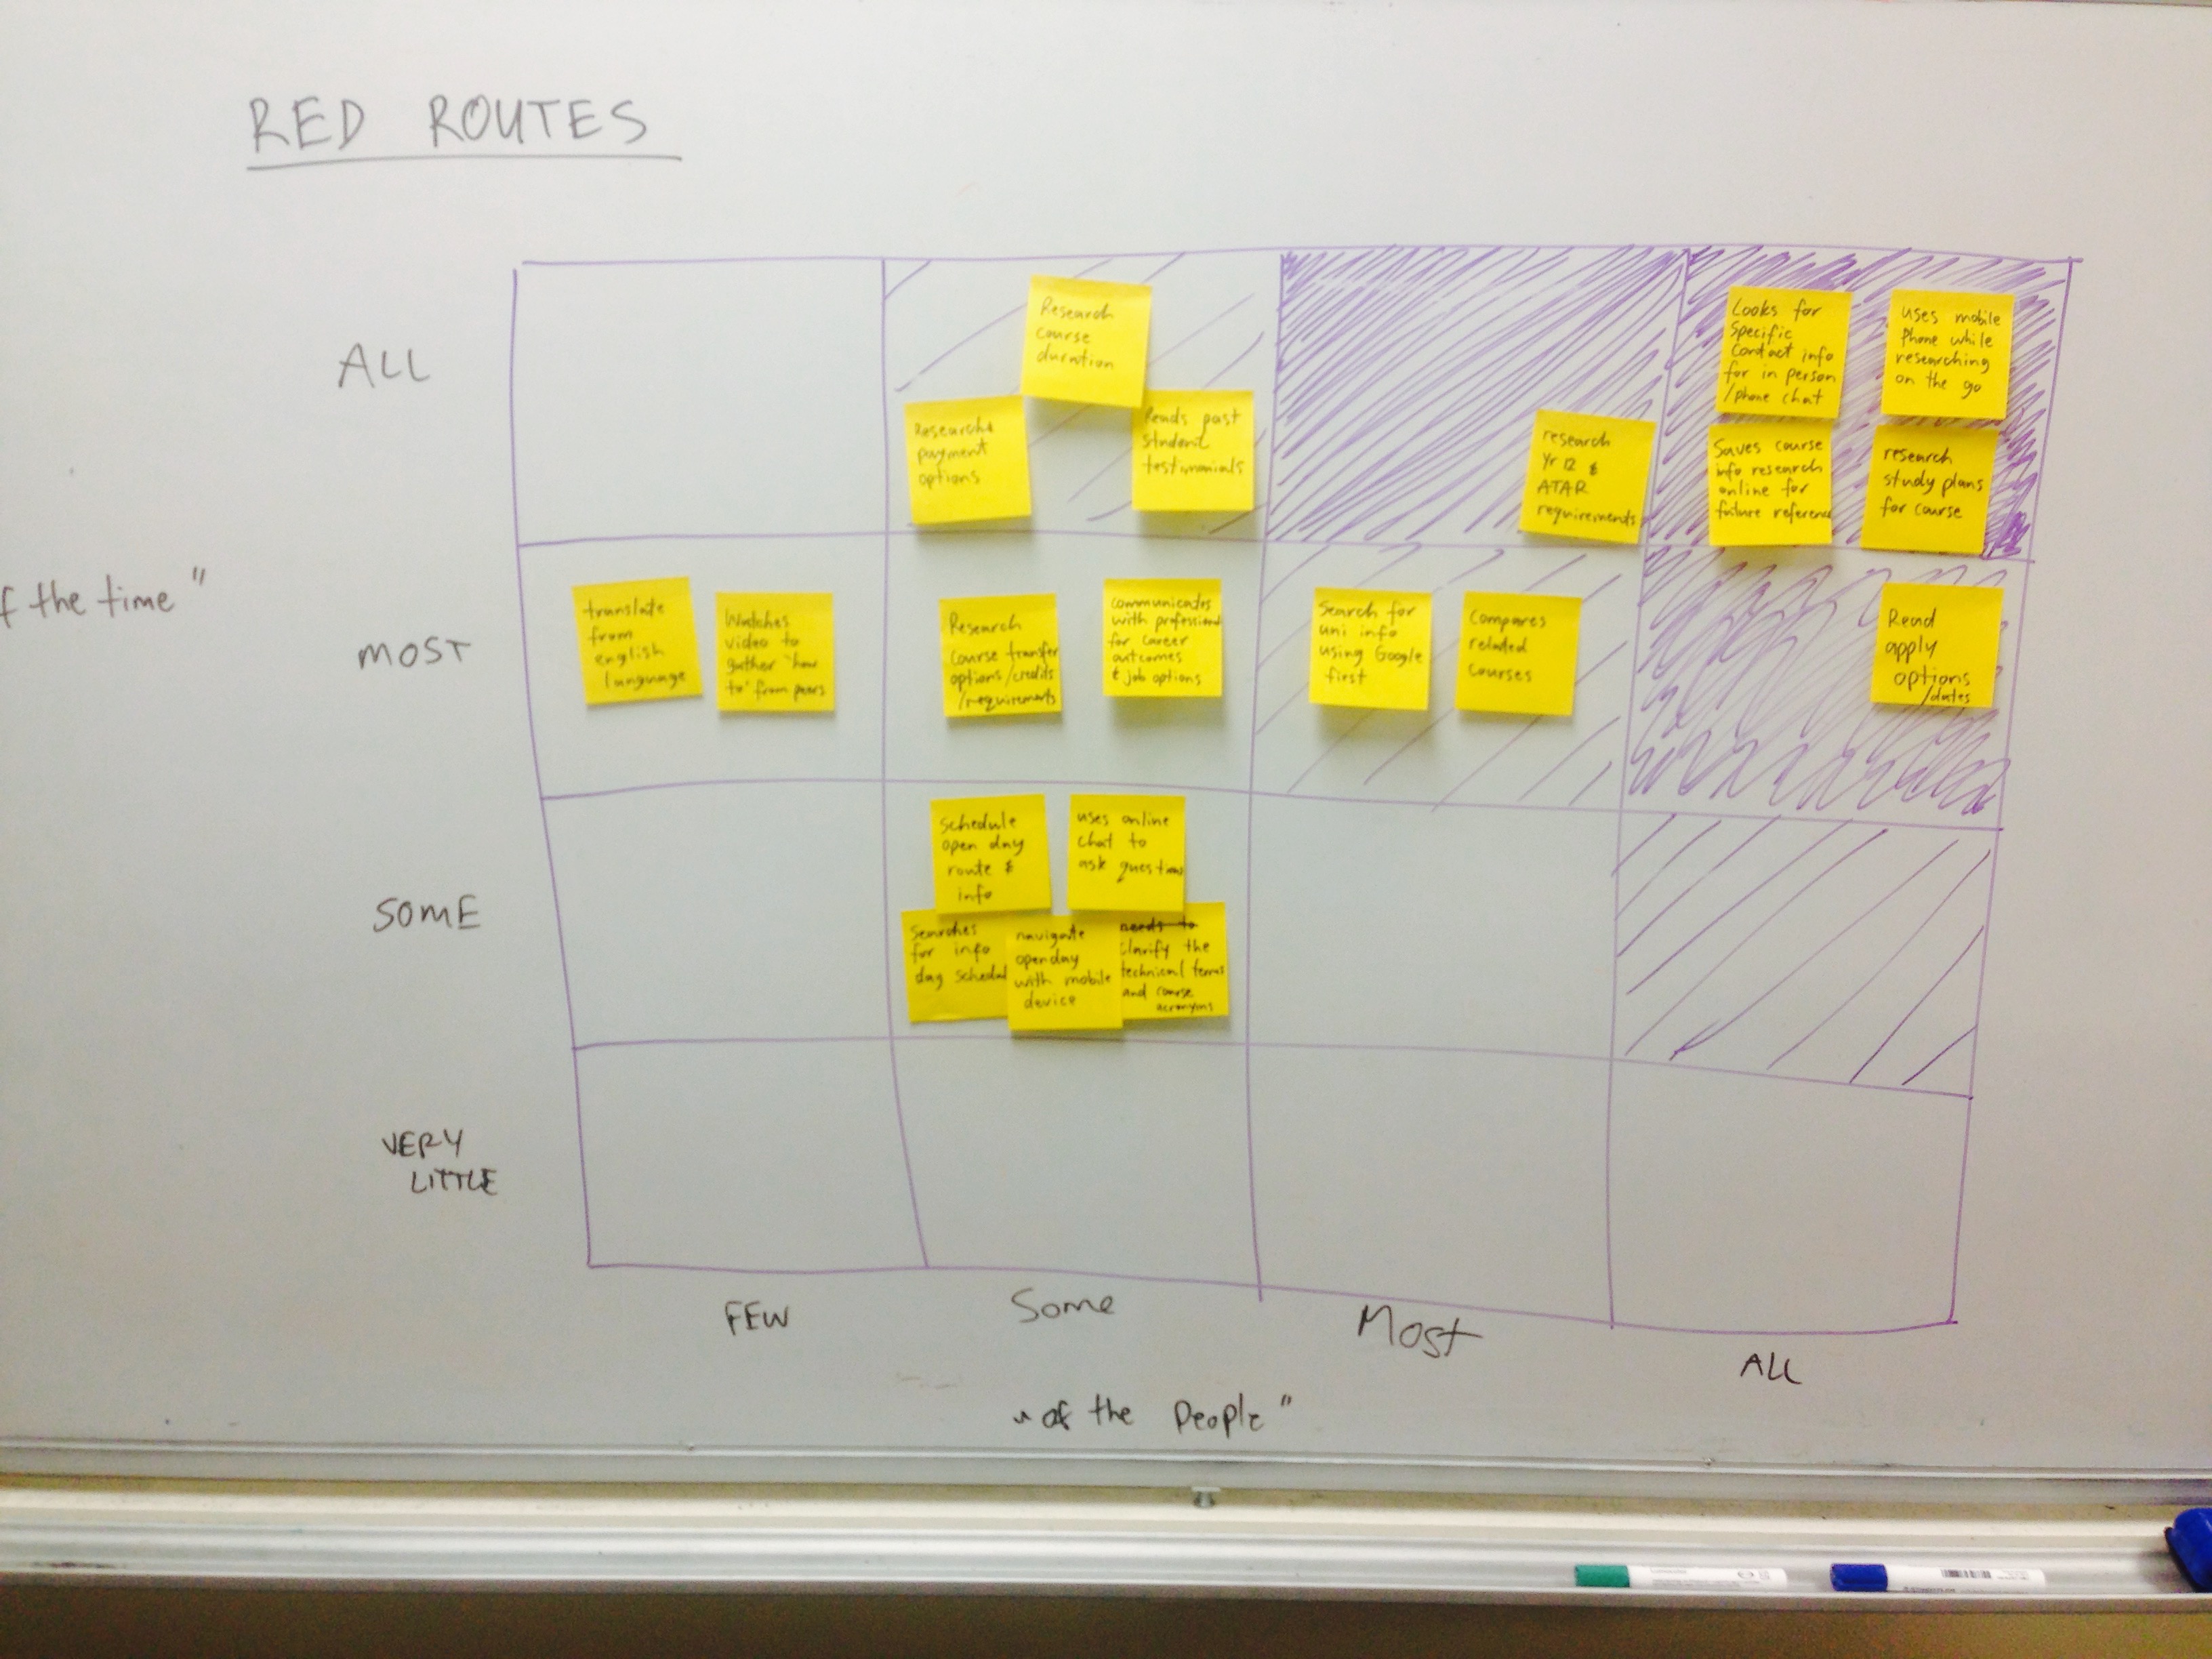 RED ROUTES
ALL
Research
course
duration
Research
payment
options
Reads past
student
testimonials
research
Yr 12 &
ATAR
requirements
Looks for
specific
contact info
for in person
/phone chat
uses mobile
phone while
researching
on the go
Saves course
info research
online for
future reference
research
study plans
for course
f the time"
MOST
translate
from
english
language
Watches
video to
gather "how
to" from peers
Research
course transfer
options/credits
/requirements
communicates
with professional
for career
outcomes
& job options
Search for
uni info
using Google
first
Compares
related
courses
Read
apply
options
/dates
SOME
Schedule
open day
route &
info
uses online
chat to
ask questions
Searches
for info
day schedul
navigate
openday
with mobile
device
needs to
clarify the
technical terms
and course
acronyms
VERY
LITTLE
FEW
Some
Most
ALL
"of the People"